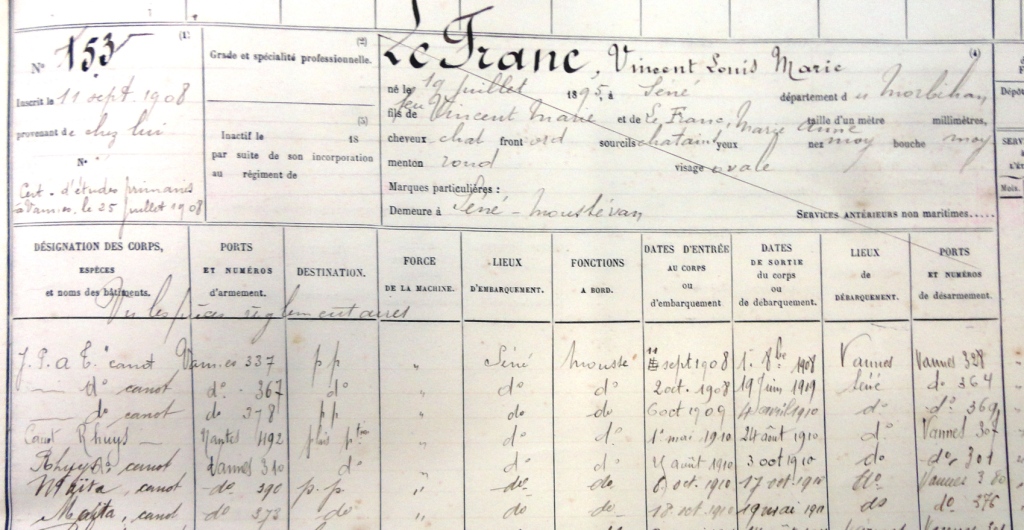 N° 153 (1)
Inscrit le 11 sept. 1908
provenant de chez lui
N°
Cert. d'études primaires
à Vannes, le 25 juillet 1908
(2)
Grade et spécialité professionnelle.
(3)
Inactif le 18
par suite de son incorporation
au régiment de
Le Franc, Vincent Louis Marie (4)
né le 19 juillet 1895, à Séné département du Morbihan
fils de feu Vincent Marie et de Le Franc, Marie Anne taille d'un mètre millimètres,
cheveux chat front ord sourcils chatain yeux nez moy bouche moy
menton rond visage ovale
Marques particulières :
Demeure à Séné - Moustérian
SERVICES ANTÉRIEURS non maritimes.....
DÉSIGNATION DES CORPS, ESPÈCES et noms des bâtiments.
PORTS ET NUMÉROS d'armement.
DESTINATION.
FORCE DE LA MACHINE.
LIEUX D'EMBARQUEMENT.
FONCTIONS A BORD.
DATES D'ENTRÉE AU CORPS ou d'embarquement.
DATES DE SORTIE du corps ou de débarquement.
LIEUX de DÉBARQUEMENT.
PORTS ET NUMÉROS de désarmement.
Vu les pièces réglementaires
J. P. à E. canot Vannes 337 pp " Séné mousse 11 sept 1908 1. 8bre 1908 Vannes Vannes 328
— d° canot d° 367 d° " d° d° 2 oct. 1908 19 juin 1919 Séné d° 364
— do canot do 378 pp " do do 6 oct 1909 4 avril 1910 d° d° 369
Canot Rhuys — Nantes 492 " d° d° 1er mai 1910 24 août 1910 d° Vannes 307
Rhuys d° canot Vannes 310 d° " d° d° août 1910 3 oct 1910 d° d° 301
canot do 390 p.p " do do oct 1910 17 oct 1910 do Vannes 380
canot do 373 do " do do 18 oct 1910 19 mai do do 376